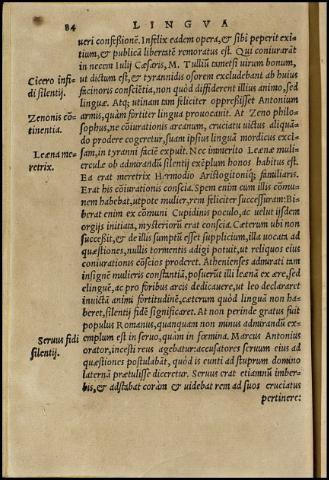 84 LINGVA
ueri confeßionē. Infelix eadem opera, & sibi peperit exi-
tium, & publicā libertatē remoratus est. Qui coniurarāt
in necem Iulij Cæsaris, M. Tulliū tametsi uirum bonum,
Cicero infi-
di silentij.
ut dictum est, & tyrannidis osorem excludebant ab huius
facinoris conscētia, non quòd diffiderent illius animo, sed
linguæ. Atq; utinam tam feliciter oppreßisset Antonium
Zenonis cō-
tinentia.
armis, quàm fortiter lingua prouocauit. At Zeno philo-
sophus, ne cōiurationis arcanum, cruciatu uictus aliquā-
do prodere cogeretur, suam ipsius linguā mordicus exci-
Leæna me-
retrix.
sam, in tyranni faciē expuit. Nec immerito Leænæ mulier
culæ ob admirandū silentij exēplum honos habitus est.
Ea erat meretrix Harmodio Aristogitoniq; familiaris.
Erat his cōiurationis conscia. Spem enim cum illis commu-
nem habebat, utpote mulier, rem feliciter successuram: Bi
berat enim ex cōmuni Cupidinis poculo, ac uelut ijsdem
orgijs initiata, mysteriorū erat conscia. Cæterum ubi non
succeßit, & de illis sumptū esset supplicium, illa uocata ad
quæstiones, nullis tormentis adigi potuit, ut reliquos eius
coniurationis cōscios proderet. Athenienses admirati tam
insignē mulieris constantiā, posuerūt illi leænā ex ære, sed
elinguē, ac pro foribus arcis dedicauere, ut leo declararet
inuictā animi fortitudinē, cæterum quòd lingua non ha-
beret, silentij fidē significaret. At non perinde gratus fuit
populus Romanus, quanquam non minus admirandū ex-
Seruus fidi
silentij.
emplum est in seruo, quàm in fœmina. Marcus Antonius
orator, incesti reus agebatur: accusatores seruum eius ad
quæstiones postulabāt, quòd is eunti ad stuprum domino
laternā prætulisse diceretur. Seruus erat etiamnū imber-
bis, & adstabat corā, & uidebat rem ad suos cruciatus
pertinere: